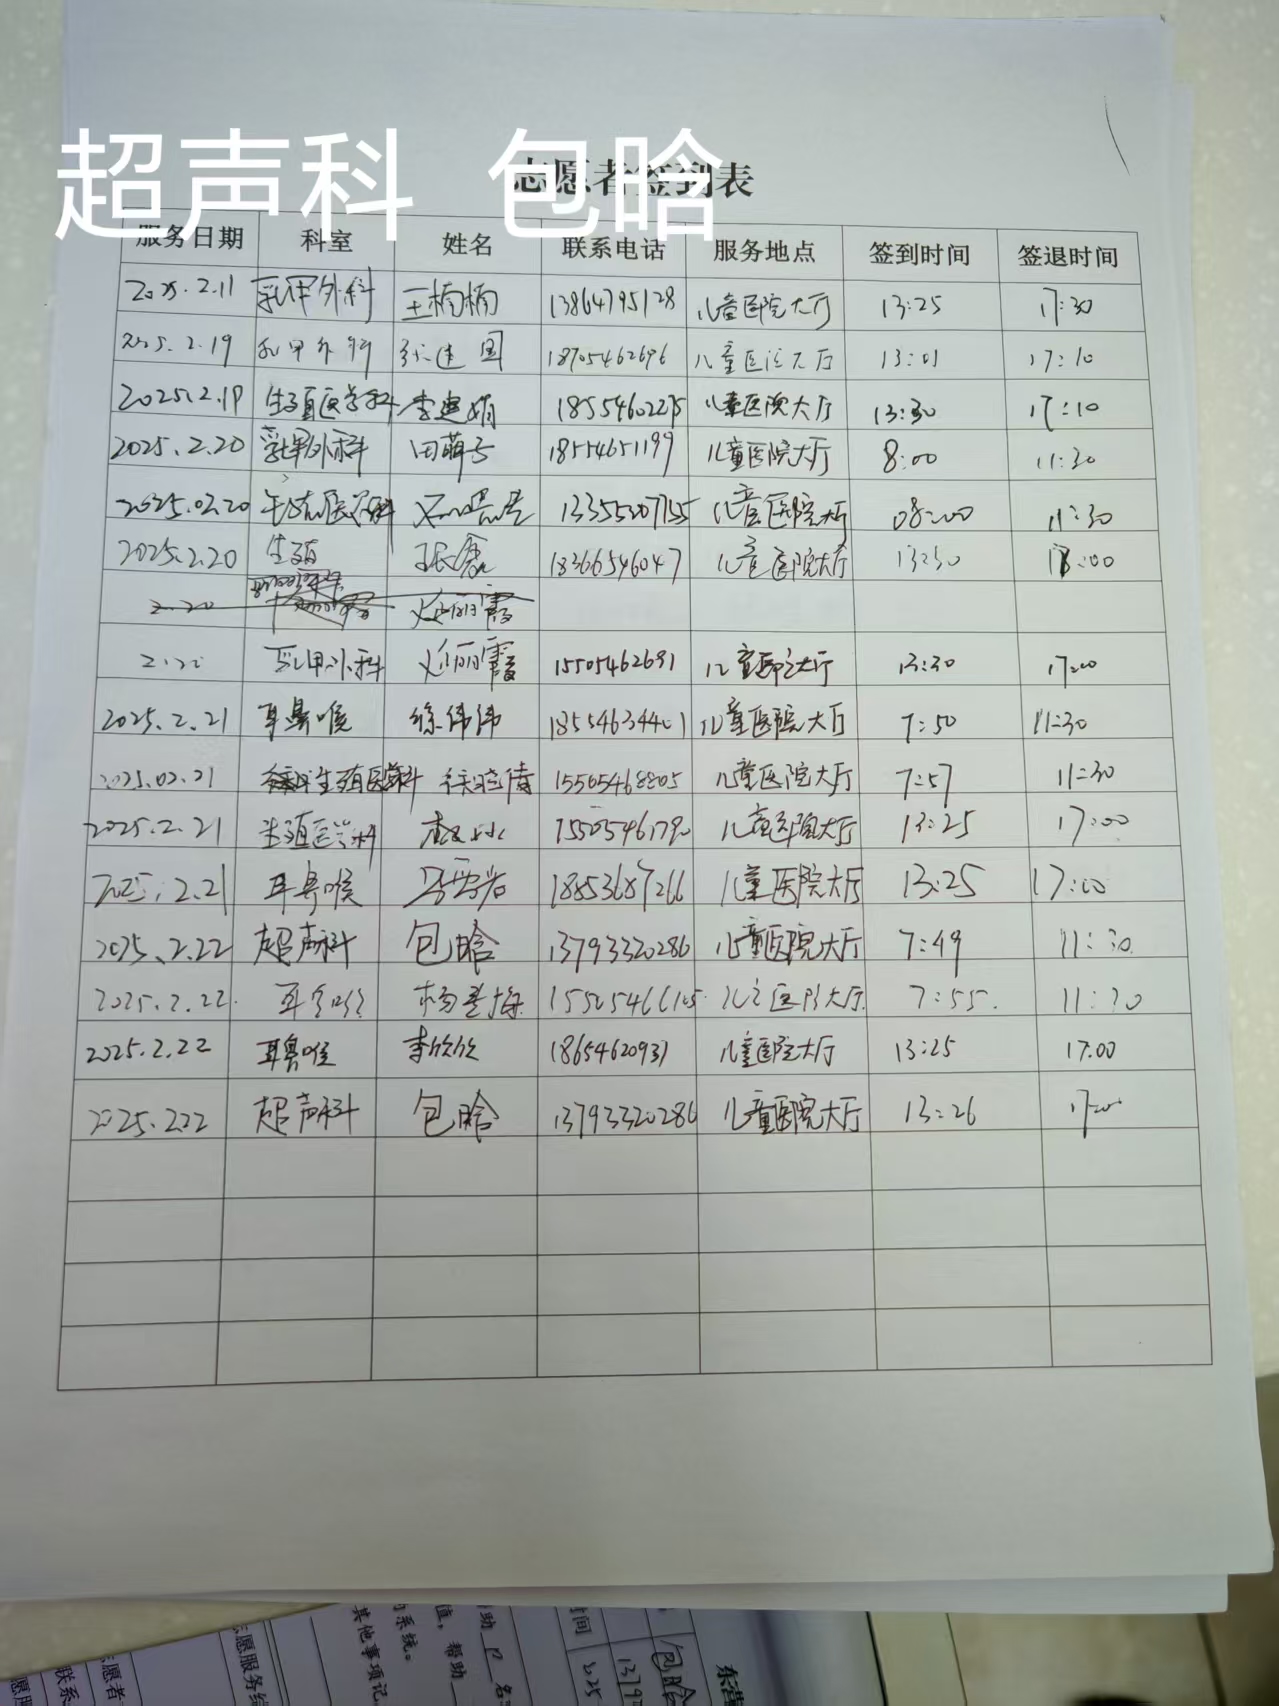 超声科 包晗
志愿者签到表
服务日期 科室 姓名 联系电话 服务地点 签到时间 签退时间
2025.2.11 乳甲外科 王楠楠 13864795128 儿童医院大厅 13:25 17:30
2025.2.19 乳甲外科 张建国 18705462696 儿童医院大厅 13:01 17:10
2025.2.19 生殖医学科 李建娟 18554602275 儿童医院大厅 13:30 17:10
2025.2.20 乳甲外科 田萌 18554651199 儿童医院大厅 8:00 11:30
2025.02.20 生殖医学科 13355207155 儿童医院大厅 08:00 11:30
2025.2.20 生殖 张 18366546047 儿童医院大厅 13:30 18:00
2.20 丽霞
2.20 乳甲外科 丽霞 15505462691 儿童医院大厅 13:30 17:00
2025.2.21 耳鼻喉 徐伟伟 18554634401 儿童医院大厅 7:50 11:30
2025.02.21 生殖医学科 徐晓倩 15505468805 儿童医院大厅 7:57 11:30
2025.2.21 生殖医学科 15505461790 儿童医院大厅 13:25 17:00
2025.2.21 耳鼻喉 18853687266 儿童医院大厅 13:25 17:00
2025.2.22 超声科 包晗 13793320286 儿童医院大厅 7:49 11:30
2025.2.22 耳鼻喉 杨 15505466105 儿童医院大厅 7:55 11:30
2025.2.22 耳鼻喉 李欣欣 18654620931 儿童医院大厅 13:25 17:00
2025.2.22 超声科 包晗 13793320286 儿童医院大厅 13:26 17:00
其他事项记
的系统。
值，帮助
志愿服务
联系
志愿者
包晗
东营